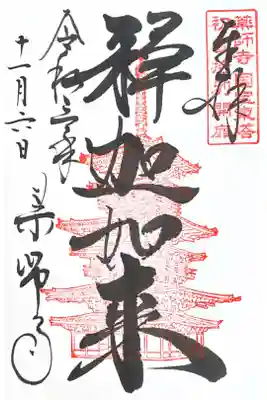 奉拝
薬師寺 国宝東塔
初層特別開扉
釋迦如来
令和三年
十一月六日
薬師寺